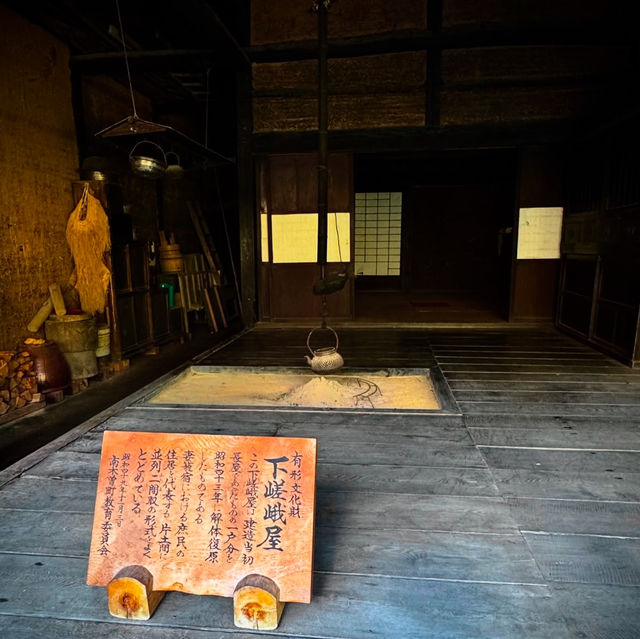 有形文化財
下嵯峨屋
この下嵯峨屋は建造当初
長屋であったものの一戸分を
昭和四十三年に解体復原
したものである
妻籠宿における庶民の
住居を代表する片土間に
並列二間取の形式をよく
とどめている。
南木曽町教育委員会